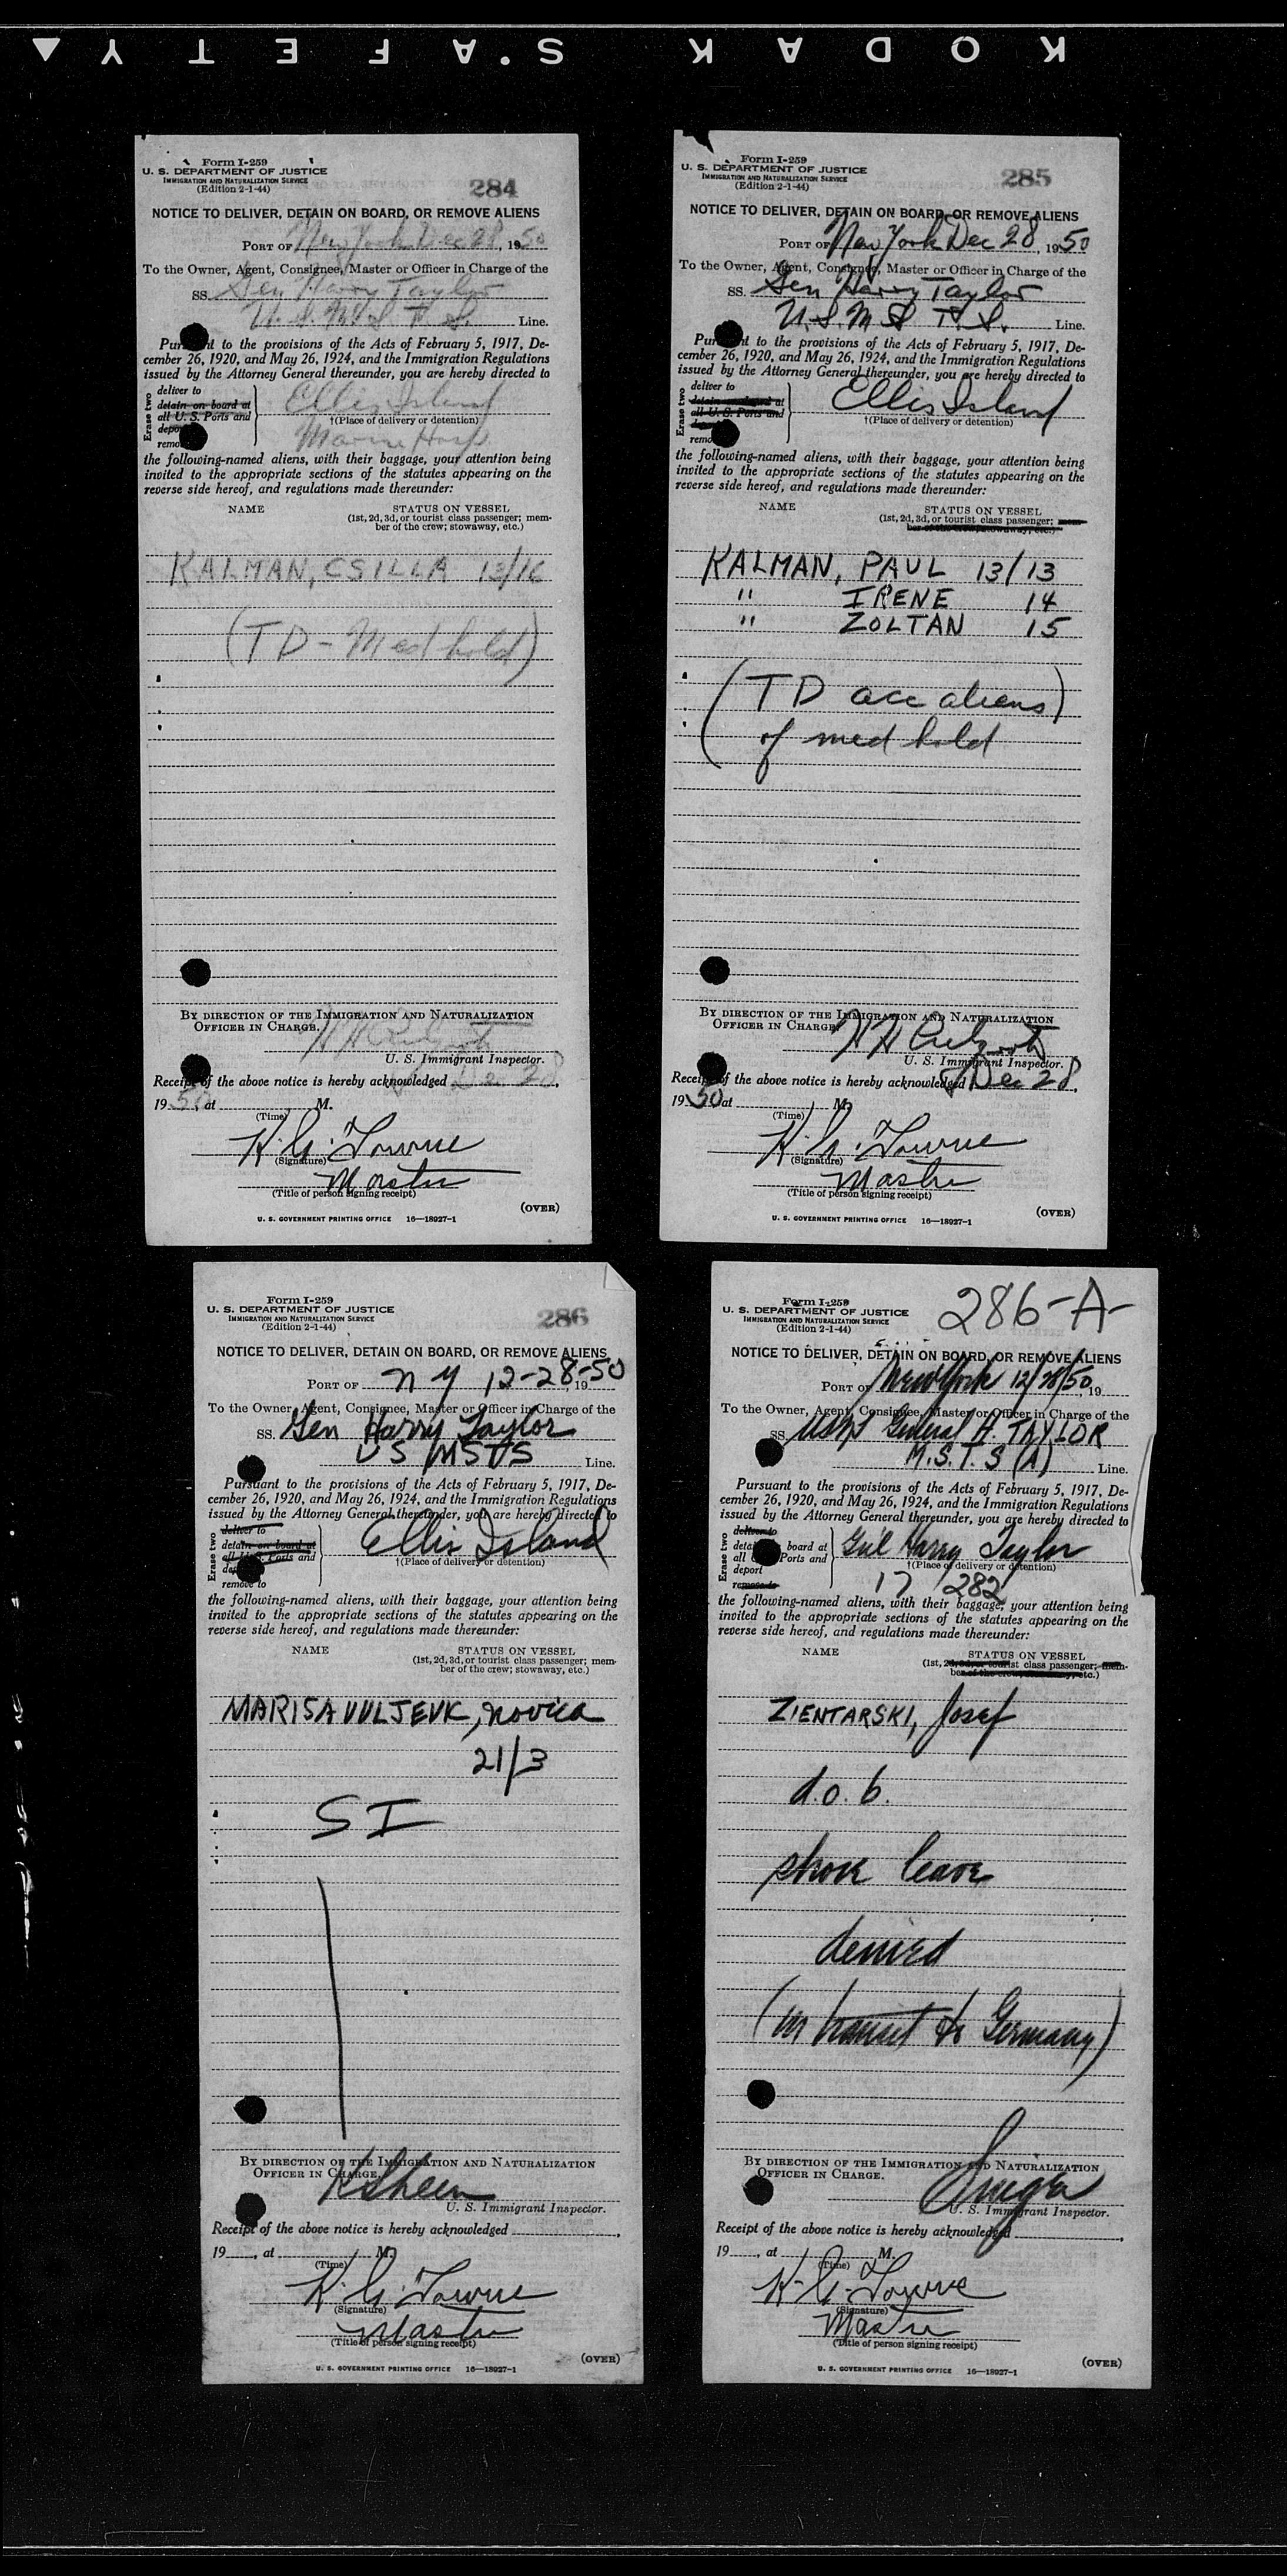 KODAK SAFETY
Form I-259
U. S. DEPARTMENT OF JUSTICE
IMMIGRATION AND NATURALIZATION SERVICE
(Edition 2-1-44)
284
NOTICE TO DELIVER, DETAIN ON BOARD, OR REMOVE ALIENS
PORT OF New York Dec 28, 1950
To the Owner, Agent, Consignee, Master or Officer in Charge of the
SS. Gen Harry Taylor
U.S.M.S.T.S. Line.
Pursuant to the provisions of the Acts of February 5, 1917, De-
cember 26, 1920, and May 26, 1924, and the Immigration Regulations
issued by the Attorney General thereunder, you are hereby directed to
Erase two
deliver to
detain on board at
all U. S. Ports and
deport
remove
Ellis Island
†(Place of delivery or detention)
Marine Hosp.
the following-named aliens, with their baggage, your attention being
invited to the appropriate sections of the statutes appearing on the
reverse side hereof, and regulations made thereunder:
NAME STATUS ON VESSEL
(1st, 2d, 3d, or tourist class passenger; mem-
ber of the crew; stowaway, etc.)
KALMAN, CSILLA 13/16
(TD - Med hold)
BY DIRECTION OF THE IMMIGRATION AND NATURALIZATION
OFFICER IN CHARGE.
U. S. Immigrant Inspector.
Receipt of the above notice is hereby acknowledged Dec 28,
1950, at M.
(Time)
K. G. Towne
(Signature)
Master
(Title of person signing receipt)
(OVER)
U. S. GOVERNMENT PRINTING OFFICE 16—18927-1
Form I-259
U. S. DEPARTMENT OF JUSTICE
IMMIGRATION AND NATURALIZATION SERVICE
(Edition 2-1-44)
285
NOTICE TO DELIVER, DETAIN ON BOARD, OR REMOVE ALIENS
PORT OF New York Dec 28, 1950
To the Owner, Agent, Consignee, Master or Officer in Charge of the
SS. Gen Harry Taylor
U.S.M.S.T.S. Line.
Pursuant to the provisions of the Acts of February 5, 1917, De-
cember 26, 1920, and May 26, 1924, and the Immigration Regulations
issued by the Attorney General thereunder, you are hereby directed to
Erase two
deliver to
detain on board at
all U. S. Ports and
deport
remove
Ellis Island
†(Place of delivery or detention)
the following-named aliens, with their baggage, your attention being
invited to the appropriate sections of the statutes appearing on the
reverse side hereof, and regulations made thereunder:
NAME STATUS ON VESSEL
(1st, 2d, 3d, or tourist class passenger; mem-
ber of the crew; stowaway, etc.)
KALMAN, PAUL 13/13
" IRENE 14
" ZOLTAN 15
(TD acc aliens)
of med hold
BY DIRECTION OF THE IMMIGRATION AND NATURALIZATION
OFFICER IN CHARGE.
U. S. Immigrant Inspector.
Receipt of the above notice is hereby acknowledged Dec 28,
1950 at M.
(Time)
K. G. Towne
(Signature)
Master
(Title of person signing receipt)
(OVER)
U. S. GOVERNMENT PRINTING OFFICE 16—18927-1
Form I-259
U. S. DEPARTMENT OF JUSTICE
IMMIGRATION AND NATURALIZATION SERVICE
(Edition 2-1-44)
286
NOTICE TO DELIVER, DETAIN ON BOARD, OR REMOVE ALIENS
PORT OF N Y 12-28-50, 19
To the Owner, Agent, Consignee, Master or Officer in Charge of the
SS. Gen Harry Taylor
US MSTS Line.
Pursuant to the provisions of the Acts of February 5, 1917, De-
cember 26, 1920, and May 26, 1924, and the Immigration Regulations
issued by the Attorney General thereunder, you are hereby directed to
Erase two
deliver to
detain on board at
all U. S. Ports and
deport
remove to
Ellis Island
†(Place of delivery or detention)
the following-named aliens, with their baggage, your attention being
invited to the appropriate sections of the statutes appearing on the
reverse side hereof, and regulations made thereunder:
NAME STATUS ON VESSEL
(1st, 2d, 3d, or tourist class passenger; mem-
ber of the crew; stowaway, etc.)
MARISAVULJEVK, Novica
21/3
SI
BY DIRECTION OF THE IMMIGRATION AND NATURALIZATION
OFFICER IN CHARGE.
U. S. Immigrant Inspector.
Receipt of the above notice is hereby acknowledged ,
19 , at M.
(Time)
K. G. Towne
(Signature)
Master
(Title of person signing receipt)
(OVER)
U. S. GOVERNMENT PRINTING OFFICE 16—18927-1
Form I-259
U. S. DEPARTMENT OF JUSTICE
IMMIGRATION AND NATURALIZATION SERVICE
(Edition 2-1-44)
286-A-
NOTICE TO DELIVER, DETAIN ON BOARD, OR REMOVE ALIENS
PORT OF New York 12/28/50, 19
To the Owner, Agent, Consignee, Master or Officer in Charge of the
SS. USNS General H. TAYLOR
M.S.T.S (A) Line.
Pursuant to the provisions of the Acts of February 5, 1917, De-
cember 26, 1920, and May 26, 1924, and the Immigration Regulations
issued by the Attorney General thereunder, you are hereby directed to
Erase two
deliver to
detain on board at
all U. S. Ports and
deport
remove to
Gn'l Harry Taylor
†(Place of delivery or detention)
17 282
the following-named aliens, with their baggage, your attention being
invited to the appropriate sections of the statutes appearing on the
reverse side hereof, and regulations made thereunder:
NAME STATUS ON VESSEL
(1st, 2d, 3d, or tourist class passenger; mem-
ber of the crew; stowaway, etc.)
ZIENTARSKI, Josef
d.o.b.
shore leave
denied
(in transit to Germany)
BY DIRECTION OF THE IMMIGRATION AND NATURALIZATION
OFFICER IN CHARGE.
U. S. Immigrant Inspector.
Receipt of the above notice is hereby acknowledged ,
19 , at M.
(Time)
K. G. Towne
(Signature)
Master
(Title of person signing receipt)
(OVER)
U. S. GOVERNMENT PRINTING OFFICE 16—18927-1